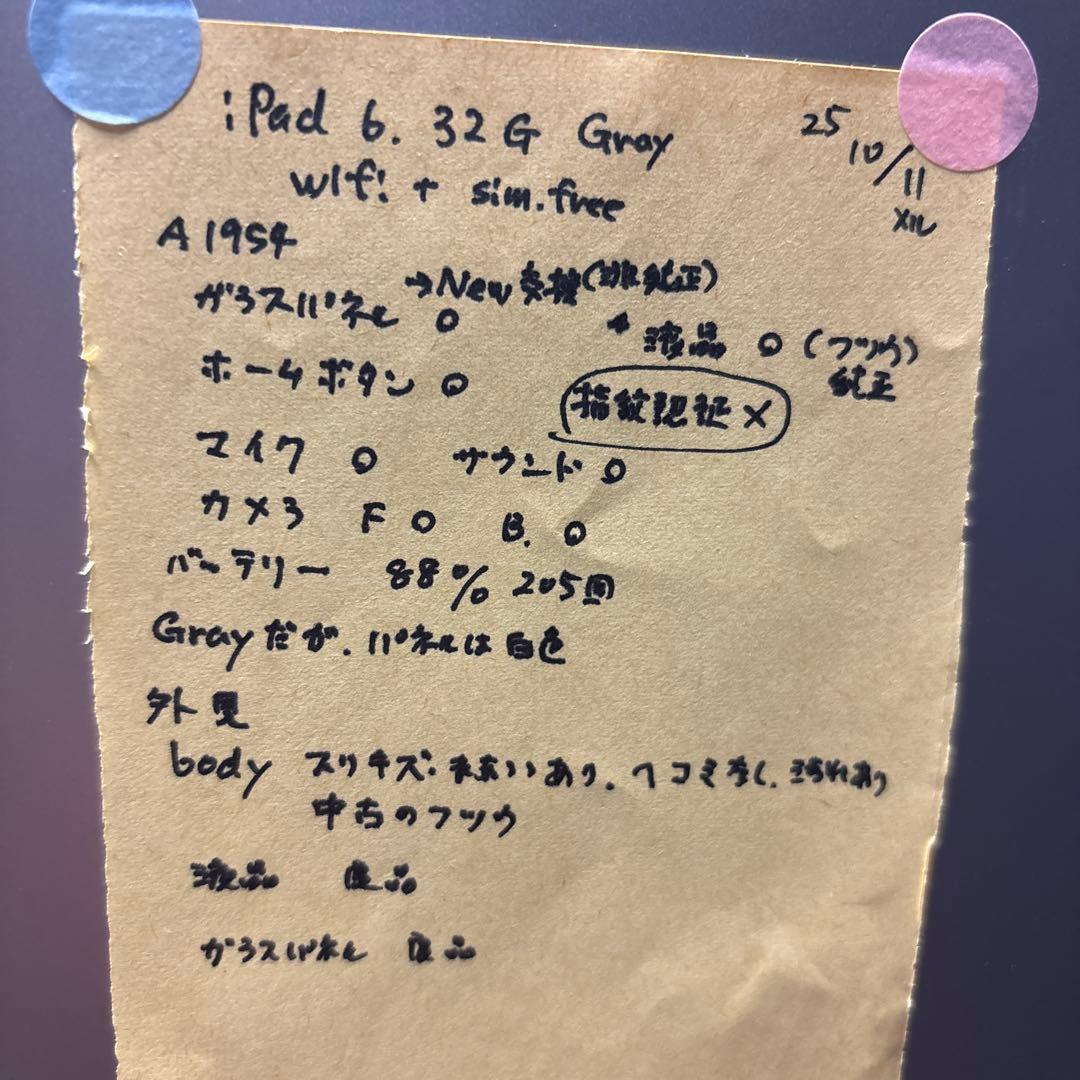 iPad 6. 32G Gray
25 10/11
wifi + sim.free
A1954
ガラスパネル ○ →New交換(非純正)
液晶 ○ (フツウ)
純正
ホームボタン ○
指紋認証 ×
マイク ○ サウンド ○
カメラ F ○ B. ○
バッテリー 88% 205回
Grayだが、パネルは白色
外見
body スリキズ、あり、ヘコミなし、汚れあり
中古のフツウ
液晶 良品
ガラスパネル 良品